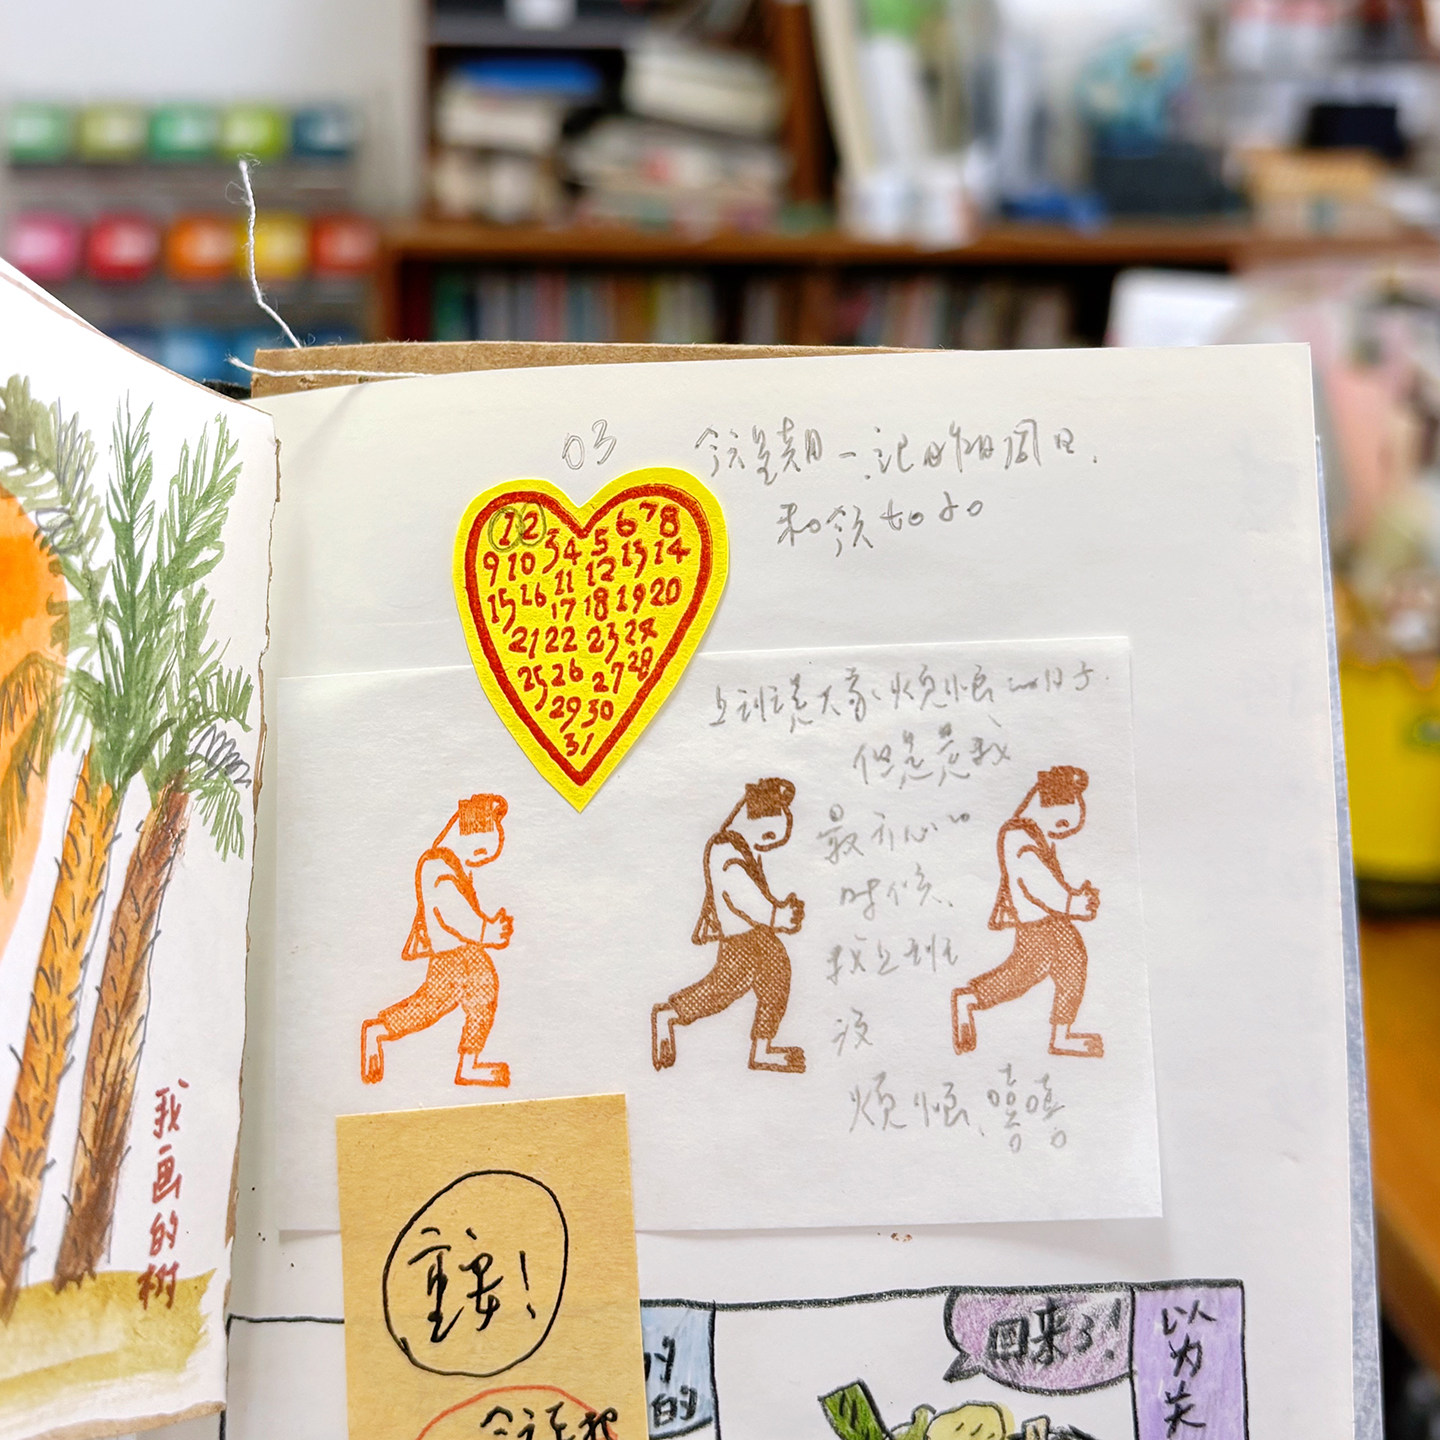 03 今天星期一.记昨日周日.
和今天 to do
1 2 3 4 5 6 7 8
9 10 11 12 13 14
15 16 17 18 19 20
21 22 23 24
25 26 27 28
29 30
31
上班是大家烦恼的日子.
但是是我
最开心的
时候、
我上班
没
烦恼、嘻嘻
我画的树
重要!
回来了!
以为关
的